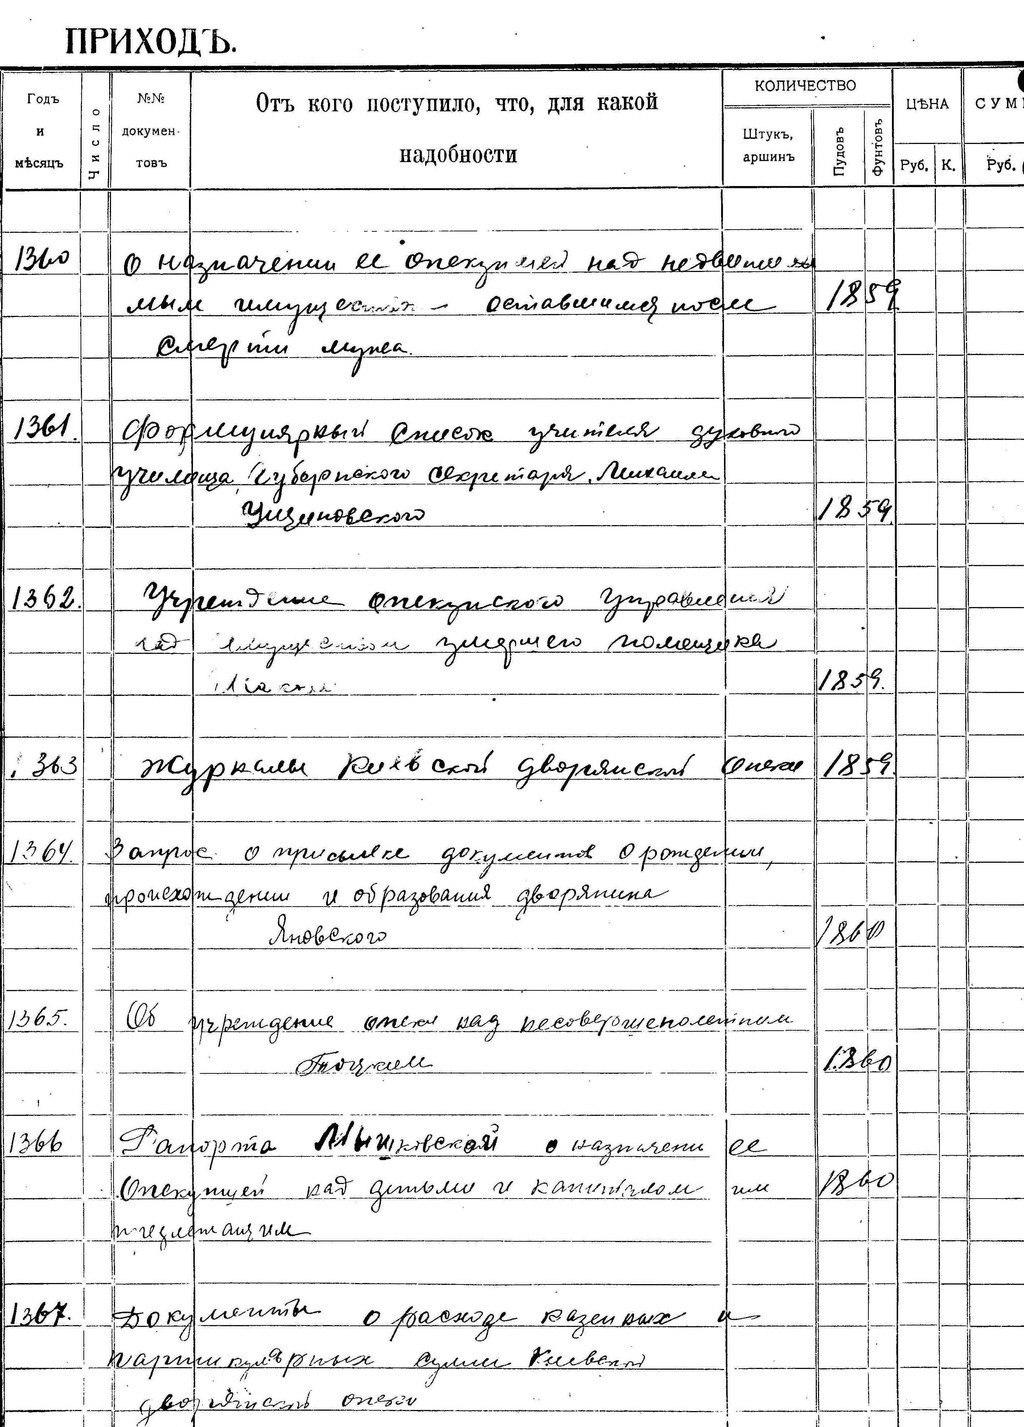 ПРИХОДЪ.
Годъ и мѣсяцъ
Число
№№ докумен- товъ
Отъ кого поступило, что, для какой
надобности
КОЛИЧЕСТВО
Штукъ, аршинъ
Пудовъ
Фунтовъ
ЦѢНА
Руб. К.
СУМ
Руб.
1360 О назначении ее опекуншей над недвижи
мым имуществом - оставшимся после 1859
смерти мужа.
1361. Формулярный список учителя духовного
училища, Губернского секретаря, Михаила
1859.
1362. Учреждение опекунского управления
над имуществом умершего помещика
1859.
1363 Журналы Киевской дворянской опеки 1859.
1364. Запрос о присылке документов о рождении,
происхождении и образования дворянина
Яновского 1860
1365. Об учреждение опеки над несовершенолетним
1860
1366 Рапорта Мышковской о назначени ее
Опекуншей над детьми и капиталом им 1860
1367. Документы о расходе казенных и
партикулярных сумм Киевской
дворянской опеки